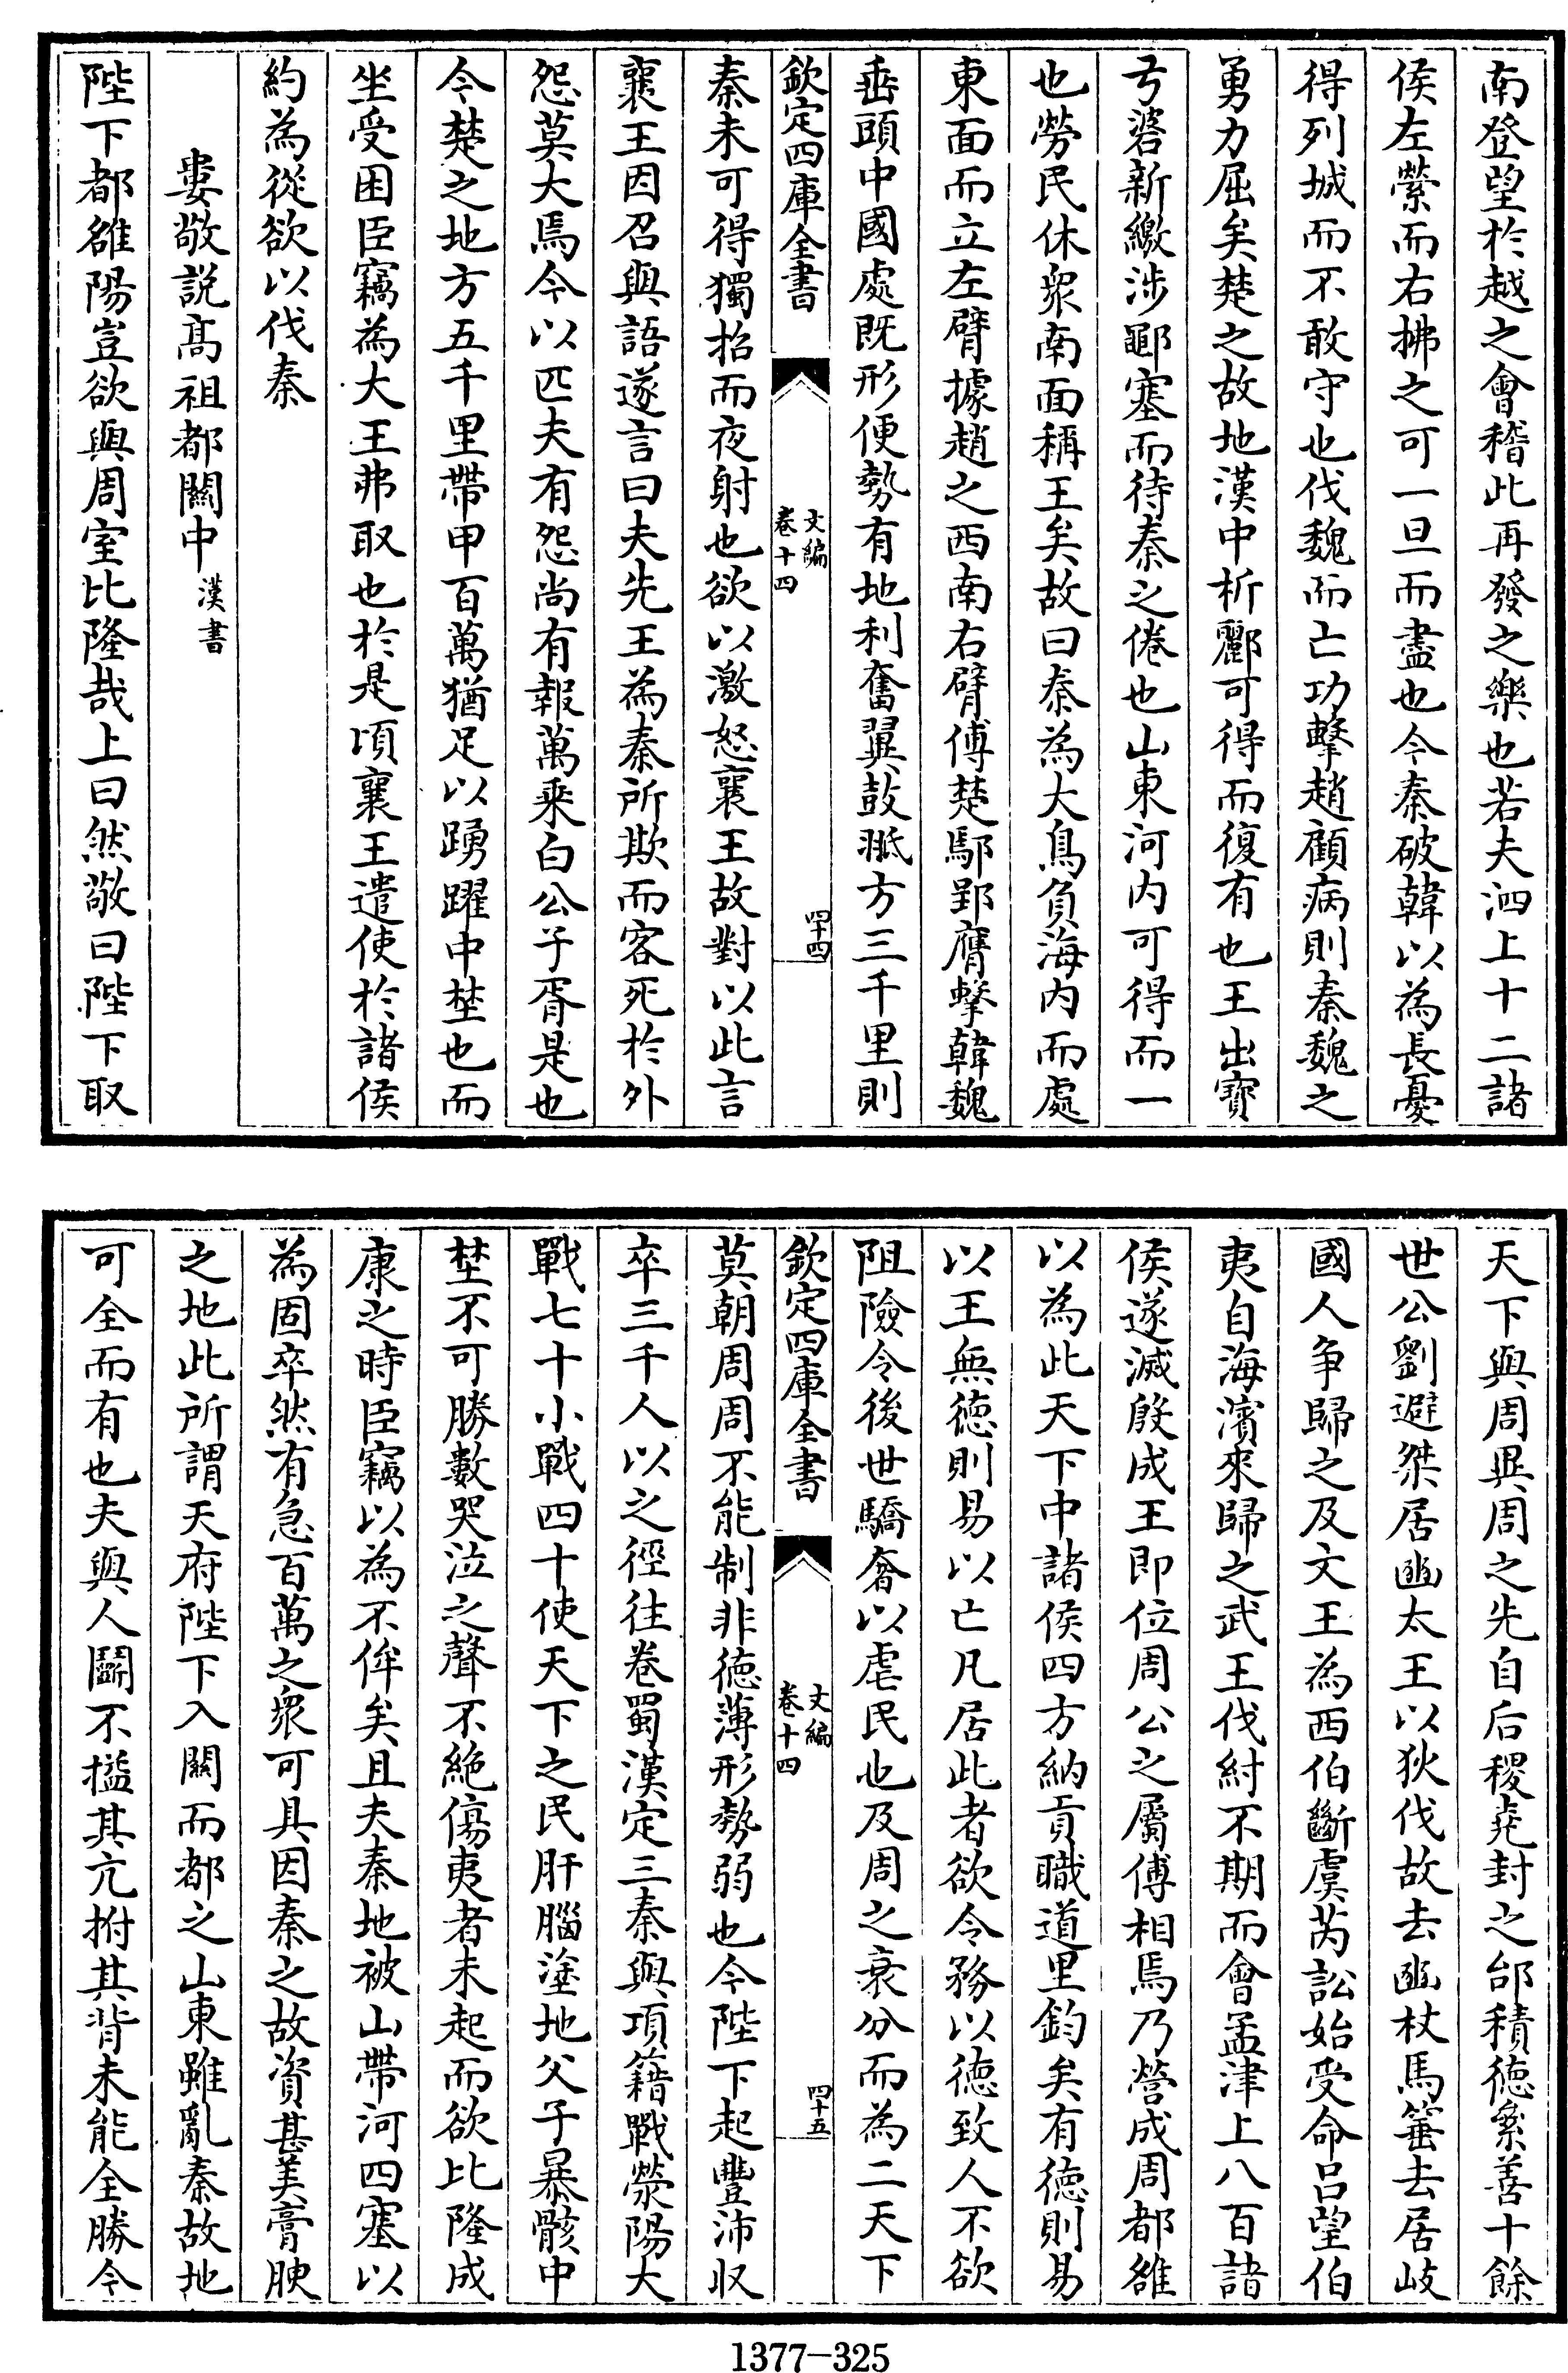 南登望於越之會稽此再發之樂也若夫泗上十二諸
侯左縈而右拂之可一旦而盡也今秦破韓以為長憂
得列城而不敢守也伐魏而亡功擊趙顧病則秦魏之
勇力屈矣楚之故地漢中析酈可得而復有也王出寶
弓碆新繳涉鄳塞而待秦之倦也山東河内可得而一
也勞民休衆南面稱王矣故曰秦為大鳥負海内而處
東面而立左臂據趙之西南右臂傅楚鄢郢膺擊韓魏
垂頭中國處既形便勢有地利奮翼鼓䎗方三千里則
欽定四庫全書
文編
卷十四
四十四
秦未可得獨招而夜射也欲以激怒襄王故對以此言
襄王因召與語遂言曰夫先王為秦所欺而客死於外
怨莫大焉今以匹夫有怨尚有報萬乗白公子胥是也
今楚之地方五千里帶甲百萬猶足以踴躍中埜也而
坐受困臣竊為大王弗取也於是頃襄王遣使於諸侯
約為從欲以伐秦
婁敬説髙祖都關中 漢書
陛下都雒陽豈欲與周室比隆哉上曰然敬曰陛下取
天下與周異周之先自后稷堯封之邰積徳絫善十餘
世公劉避桀居豳太王以狄伐故去豳杖馬箠去居岐
國人争歸之及文王為西伯斷虞芮訟始受命吕望伯
夷自海濱來歸之武王伐紂不期而會孟津上八百諸
侯遂滅殷成王即位周公之屬傅相焉乃營成周都雒
以為此天下中諸侯四方納貢職道里鈞矣有徳則易
以王無徳則易以亡凡居此者欲令務以徳致人不欲
阻險令後世驕奢以虐民也及周之衰分而為二天下
欽定四庫全書
文編
卷十四
四十五
莫朝周周不能制非徳薄形勢弱也今陛下起豐沛収
卒三千人以之徑往卷蜀漢定三秦與項籍戰滎陽大
戰七十小戰四十使天下之民肝腦塗地父子暴骸中
埜不可勝數哭泣之聲不絶傷夷者未起而欲比隆成
康之時臣竊以為不侔矣且夫秦地被山帶河四塞以
為固卒然有急百萬之衆可具因秦之故資甚美膏腴
之地此所謂天府陛下入關而都之山東雖亂秦故地
可全而有也夫與人鬭不搤其亢拊其背未能全勝今
1377-325